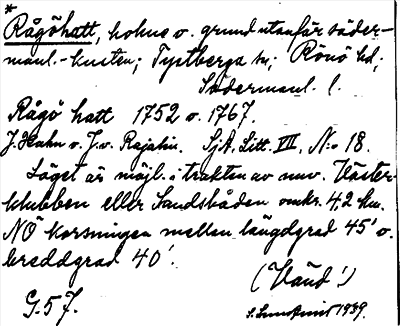 *
Rågöhatt, holme o. grund utanför söder-
manl.-kusten; Tystberga sn; Rönö hd;
Södermanl. l.
Rågö hatt 1752 o. 1767.
J. Hahn o. J. v. Rajalin. SjA. Litt VII, N:o 18.
Läget är möjl. i trakten av nuv. Väster-
klubben eller Sandsbåden omkr. 4,2 km.
NÖ korsningen mellan längdgrad 45' o.
breddgrad 40'.
(Vänd!)
G. 57.
1939.